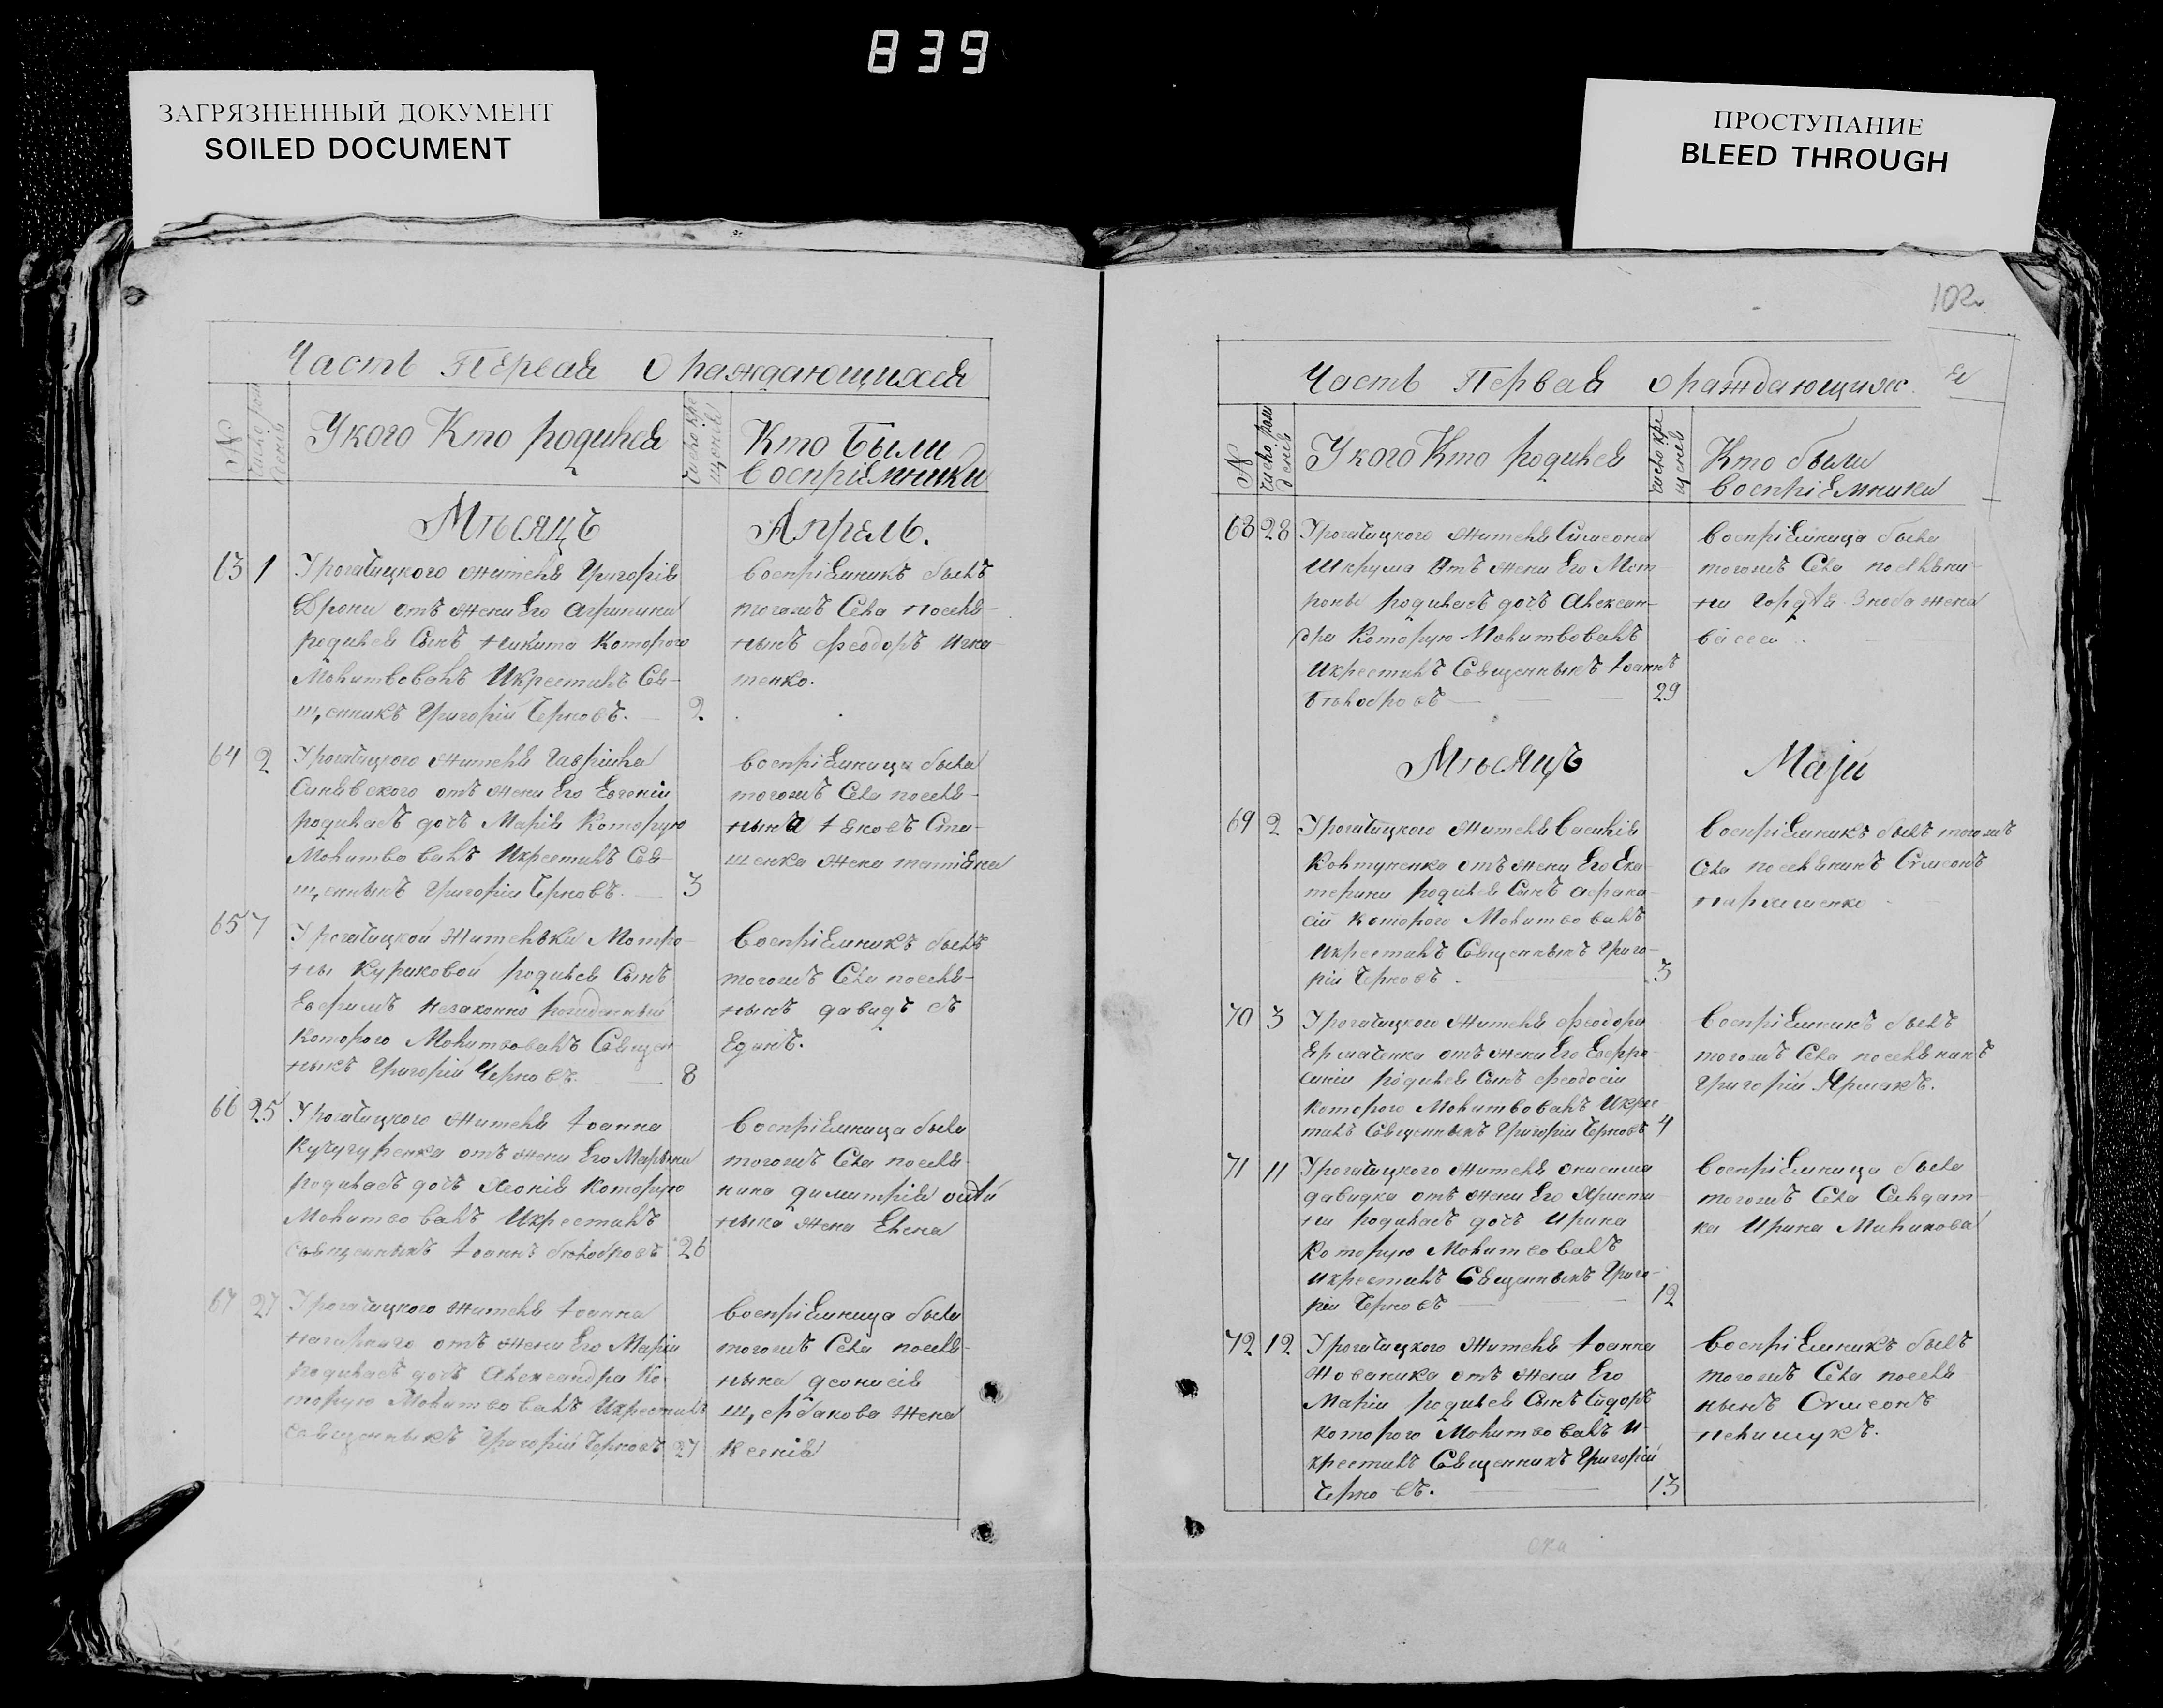 839
ЗАГРЯЗНЕННЫЙ ДОКУМЕНТ
SOILED DOCUMENT
ПРОСТУПАНИЕ
BLEED THROUGH
Часть Первая О раждающихся
№
Число рож
денія
У кого Кто родился
Число кре
щенія
Кто Были
воспріемники
Мѣсяцъ Апрель.
63 1 У рогатицкого жителя Григорія
Дроки отъ жени Его Агрипини
родился Сынъ Никита Которого
Молитвовалъ И крестилъ Свя-
щенникъ Григорій Черновъ. 2
воспріемникъ былъ
тогожъ Села посѣля-
нынъ Феодоръ Игна-
тенко.
64 2 У рогатицкого жителя Гавріила
Синявского отъ жени Его Евгеніи
родиласъ дочъ Марія Которую
Молитвовалъ И крестилъ Свя-
щенныкъ Григорій Черновъ. 3
воспріемница была
тогожъ Села поселя-
нына Яковъ Ста-
шенка жена татіяна
65 7 У рогатицкой жительки Мотро-
ны Куриковой родился Сынъ
Евфимъ незаконно рожденный
Которого Молитвовалъ Священ
ныкъ Григорій Черновъ. 8
Воспріемникъ былъ
тогожъ Села поселя-
нынъ давидъ съ
Единъ.
66 25 У рогатицкого жителя Іоанна
Кучугуренка отъ жени Его Марыны
родиласъ дочъ Леонія Которую
Молитвовалъ И крестилъ
священныкъ Іоаннъ бѣлобровъ 26
воспріемница была
тогожъ Села поселя-
нина димитрія
ныка жена Елена
67 27 У рогатицкого жителя Іоанна
Нагирного отъ жени Его Маріи
родиласъ дочъ Александра Ко-
торую Молитвовалъ И крестилъ
священныкъ Григорій Черновъ 27
воспріемница была
тогожъ Села поселя-
нына деонисія
щербакова жена
Ксенія
102
Часть Первая о раждающихс я
№
число рож
денія
У кого Кто родился
число кре
щенія
Кто были
воспріемники
68 28 У рогатицкого жителя Симеона
Шкрума Отъ жени Его Мот-
роны родиласъ дочъ Алексан-
дра Которую Молитвовалъ
И крестилъ Священныкъ Іоаннъ
Бѣлобровъ 29
воспріемница была
тогожъ Села посѣляни-
на Гордѣя Зноба жена
васса
Мѣсяцъ Маји
69 2 У рогатицкого жителя василія
Ковтуненка отъ жени Его Ека-
терини родился Сынъ афана-
сій Которого Молитвовалъ
И крестилъ Священныкъ Григо-
рій Черновъ. 3
Воспріемникъ былъ тогожъ
Села поселянинъ Симеонъ
пархоменко
70 3 У рогатицкого жителя Феодора
Ярмаченка отъ жени Его Евфро-
синіи родился Сынъ Феодосій
которого Молитвовалъ И крес-
тилъ Священныкъ Григорій Черновъ 4
воспріемникъ былъ
тогожъ Села поселянинъ
Григорій Ярмакъ.
71 11 У рогатицкого жителя онисима
давидка отъ жени Его Христи-
ни родиласъ дочъ Ирина
Которую Молитвовалъ
И крестилъ Священныкъ Григо-
рій Черновъ 12
воспріемница была
тогожъ Села Салдат-
ка Ирина Миликова
72 12 У рогатицкого жителя Іоанна
Нованика отъ жени Его
Маріи родился Сынъ Сидоръ
которого Молитвовалъ И
крестилъ Священникъ Григорій
Черновъ. 13
Воспріемникъ былъ
тогожъ Села поселя
нынъ Симеонъ
пелишукъ.